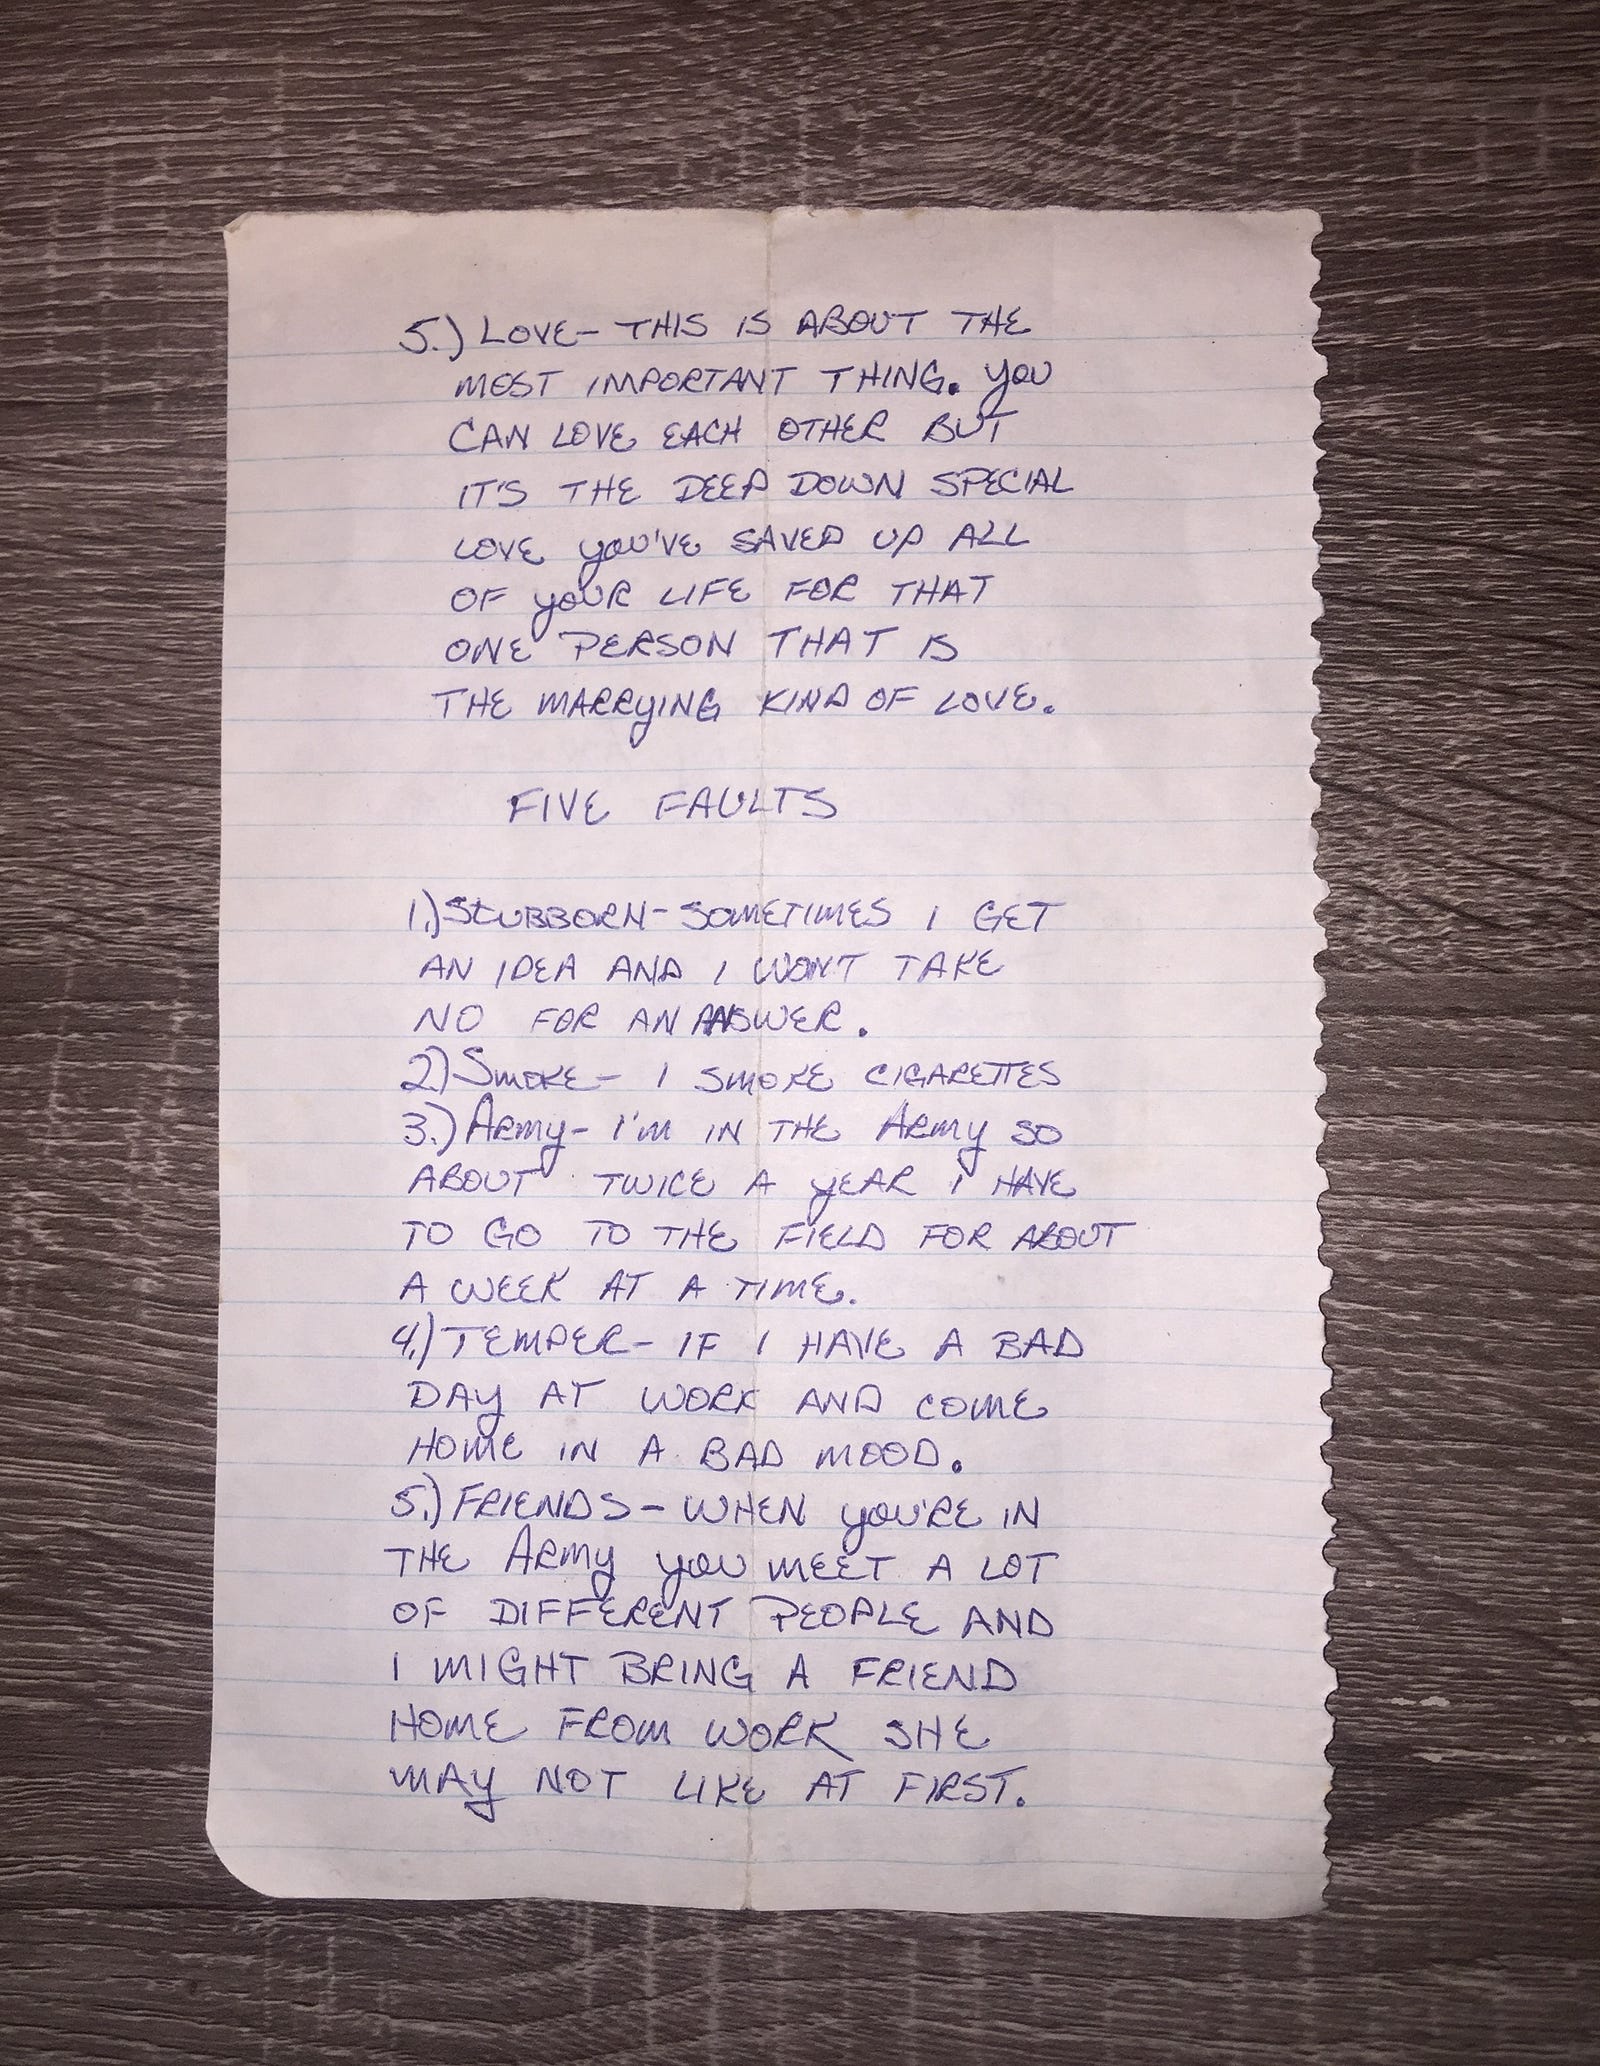 5.) LOVE- THIS IS ABOUT THE
MOST IMPORTANT THING. YOU
CAN LOVE EACH OTHER BUT
IT'S THE DEEP DOWN SPECIAL
LOVE YOU'VE SAVED UP ALL
OF YOUR LIFE FOR THAT
ONE PERSON THAT IS
THE MARRYING KIND OF LOVE.
FIVE FAULTS
1.) STUBBORN- SOMETIMES I GET
AN IDEA AND I WON'T TAKE
NO FOR AN ANSWER.
2) SMOKE- I SMOKE CIGARETTES
3.) ARMY- I'M IN THE ARMY SO
ABOUT TWICE A YEAR I HAVE
TO GO TO THE FIELD FOR ABOUT
A WEEK AT A TIME.
4.) TEMPER- IF I HAVE A BAD
DAY AT WORK AND COME
HOME IN A BAD MOOD.
5.) FRIENDS- WHEN YOU'RE IN
THE ARMY YOU MEET A LOT
OF DIFFERENT PEOPLE AND
I MIGHT BRING A FRIEND
HOME FROM WORK SHE
MAY NOT LIKE AT FIRST.